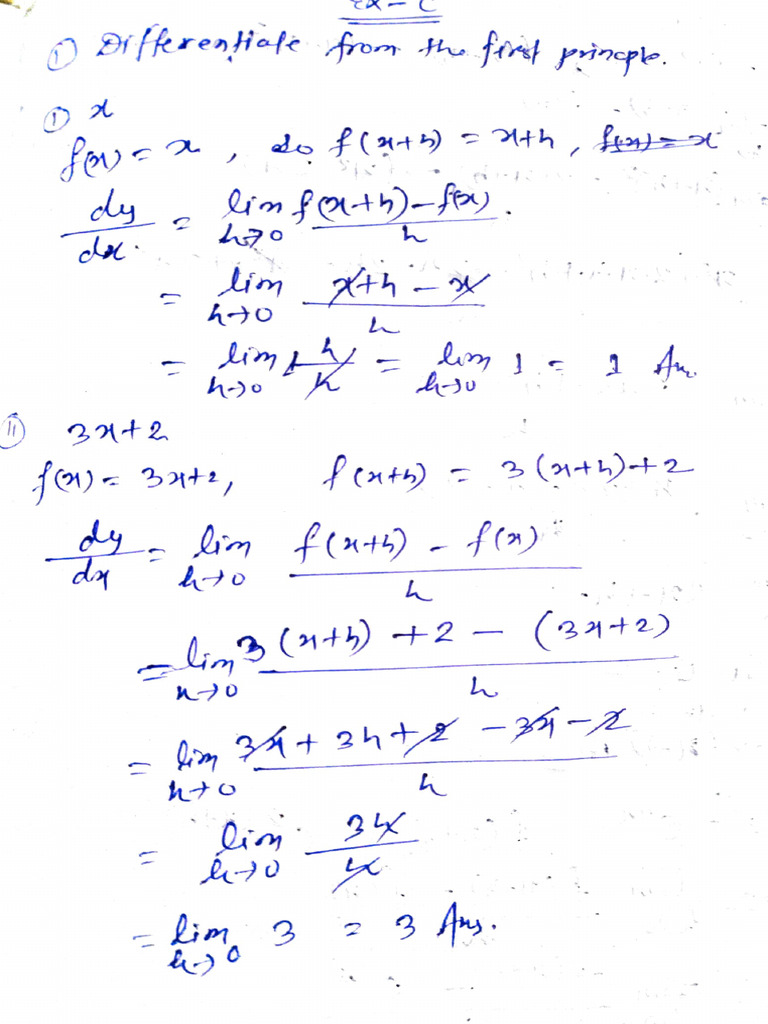 Ex - C
① Differentiate from the first principle.
① x
f(x) = x , so f(x+h) = x+h , f(x) = x
dy/dx = lim h→0 f(x+h) - f(x) / h
= lim h→0 x+h - x / h
= lim h→0 1 h / h = lim h→0 1 = 1 Ans.
⑪ 3x+2
f(x) = 3x+2, f(x+h) = 3(x+h)+2
dy/dx = lim h→0 f(x+h) - f(x) / h
= lim h→0 3(x+h) + 2 - (3x+2) / h
= lim h→0 3x + 3h + 2 - 3x - 2 / h
= lim h→0 3h / h
= lim h→0 3 = 3 Ans.